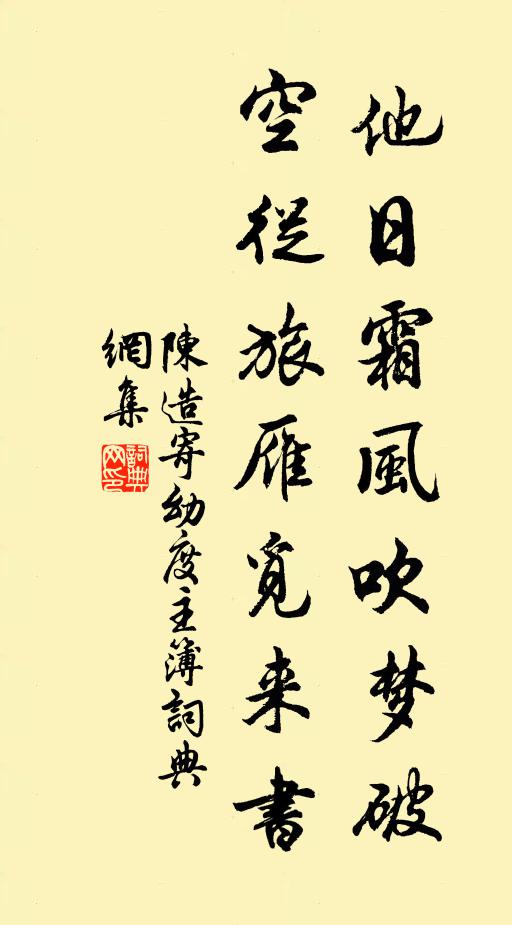 他日霜風吹梦破
空從旅雁覓来書
陳造寄幼度主簿詞典
網集
詞典网印